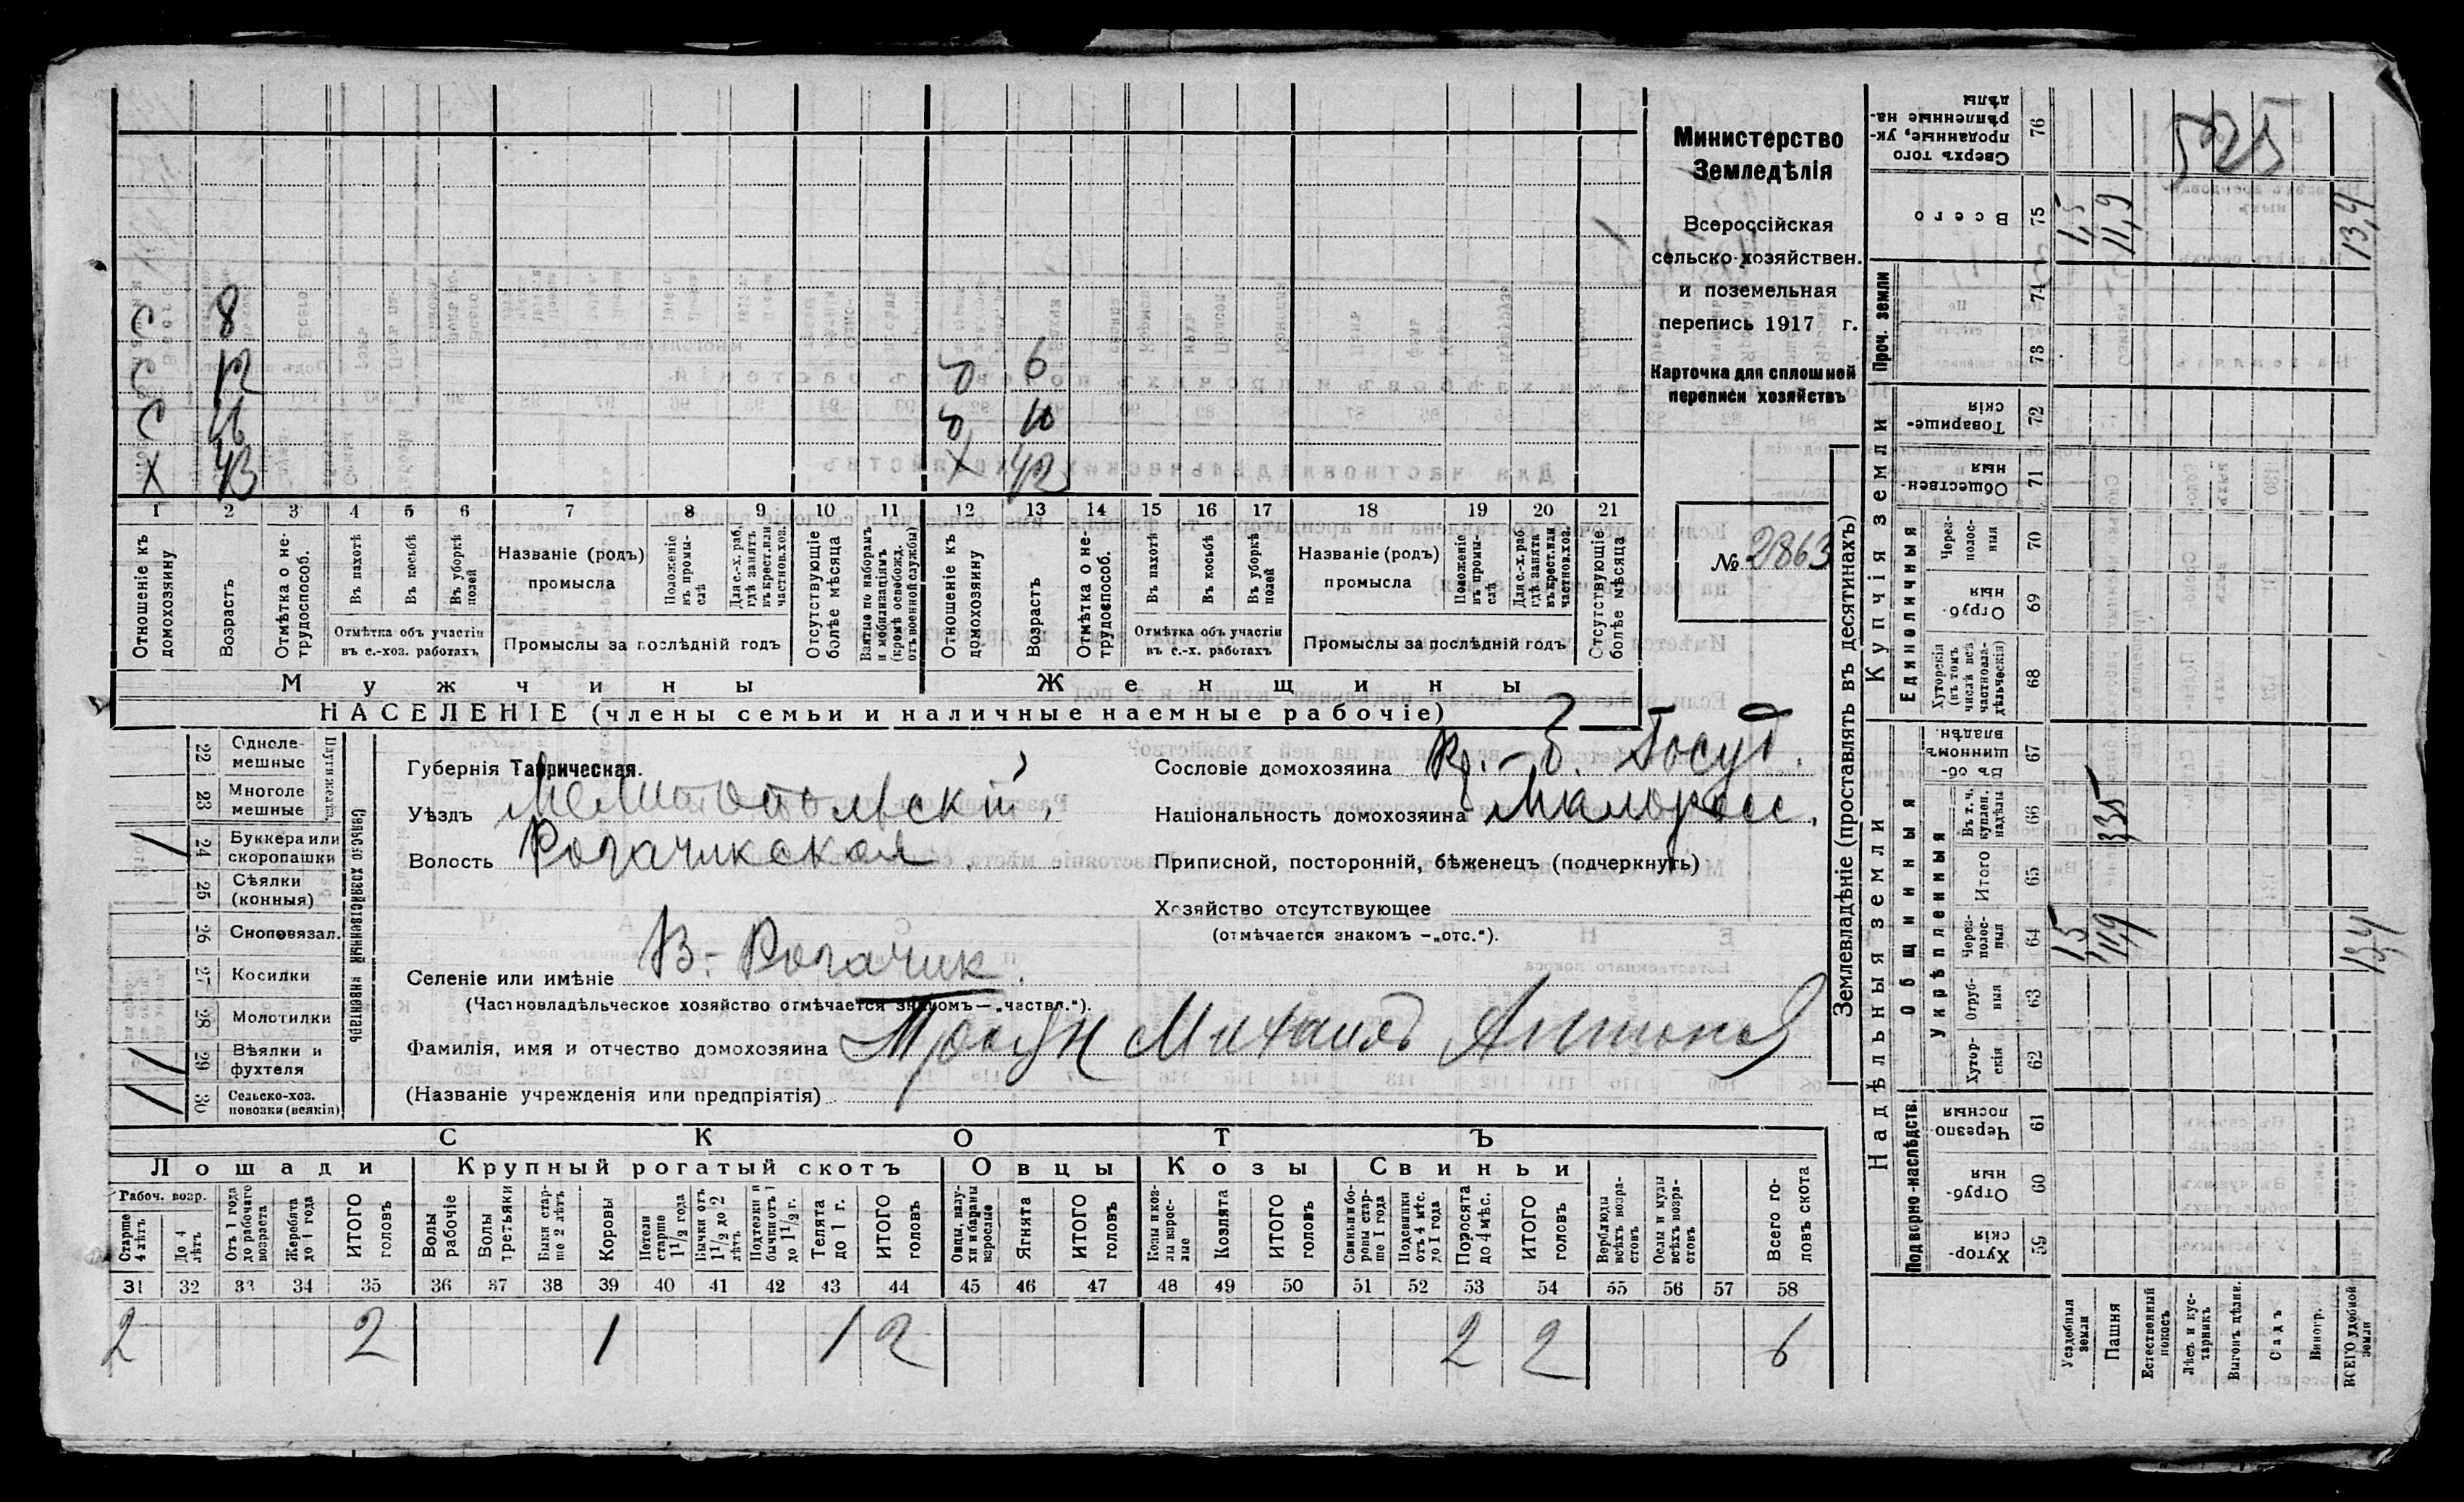 С 8
С 12 д 6
С 16 д 10
Х 43 Х 42
1 2 3 4 5 6 7 8 9 10 11 12 13 14 15 16 17 18 19 20 21
Отношеніе къ домохозяину
Возрастъ
Отмѣтка о не-трудоспособ.
Въ пахотѣ
Въ косьбѣ
Въ уборкѣ полей
Отмѣтка объ участіи въ с.-хоз. работахъ
Названіе (родъ) промысла
Положеніе въ промы-слѣ
Для с.-х. раб. гдѣ занятъ въ крест. или частнов. хоз.
Промыслы за послѣдній годъ
Отсутствующіе болѣе мѣсяца
Взятые по наборамъ и мобилизаціямъ (кромѣ освобожд. отъ военной службы)
Отношеніе къ домохозяину
Возрастъ
Отмѣтка о не-трудоспособ.
Въ пахотѣ
Въ косьбѣ
Въ уборкѣ полей
Отмѣтка объ участіи въ с.-х. работахъ
Названіе (родъ) промысла
Положеніе въ промы-слѣ
Для с.-х. раб. гдѣ занята въ крест. или частнов. хоз.
Промыслы за послѣдній годъ
Отсутствующіе болѣе мѣсяца
Мужчины Женщины
НАСЕЛЕНІЕ (члены семьи и наличные наемные рабочіе)
Министерство
Земледѣлія
Всероссійская
сельско-хозяйствен.
и поземельная
перепись 1917 г.
Карточка для сплошной
переписи хозяйствъ
№ 2863
Сельско хозяйственный инвентарь
22 Одноле-мешные
23 Многоле мешные
24 Буккера или скоропашки /
25 Сѣялки (конныя)
26 Сноповязал.
27 Косилки
28 Молотилки
29 Вѣялки и фухтеля /
30 Сельско-хоз. повозки (всякія) /
Губернія Таврическая.
Уѣздъ Мелитопольскій
Волость Рогачикская
Селеніе или имѣніе В.-Рогачик
(Частновладѣльческое хозяйство отмѣчается знакомъ — „частвл.“).
Фамилія, имя и отчество домохозяина Михаилъ Антонов
(Названіе учрежденія или предпріятія)
Сословіе домохозяина Кр.-б. Госуд.
Національность домохозяина Малоросс.
Приписной, посторонній, бѣженецъ (подчеркнуть)
Хозяйство отсутствующее
(отмѣчается знакомъ — „отс.“).
СКОТЪ
Лошади Крупный рогатый скотъ Овцы Козы Свиньи
Рабоч. возр.
Старше 4 лѣтъ
До 4 лѣтъ
Отъ 1 года до рабочаго возраста
Жеребята до 1 года
ИТОГО головъ
Волы рабочіе
Волы третьяки
Быки стар-ше 2 лѣтъ
Коровы
Нетели старше 1 1/2 года
Бычки отъ 1 1/2 до 2 лѣтъ
Подтелки и бычки отъ 1 до 1 1/2 г.
Телята до 1 г.
ИТОГО головъ
Овцы, валу-хи и бараны взрослые
Ягнята
ИТОГО головъ
Козы и коз-лы взрос-лые
Козлята
ИТОГО головъ
Свиньи и бо-ровы стар-ше 1 года
Подсвинки отъ 4 мѣс. до 1 года
Поросята до 4 мѣс.
ИТОГО головъ
Верблюды всѣхъ возра-стовъ
Ослы и мулы всѣхъ возра-стовъ
Всего го-ловъ скота
31 32 33 34 35 36 37 38 39 40 41 42 43 44 45 46 47 48 49 50 51 52 53 54 55 56 57 58
2 2 1 1 2 2 2 6
Землевладѣніе (проставлять въ десятинахъ)
Надѣльныя земли Купчія земли Проч. земли
Подворно-наслѣдств. Общинныя Единоличныя
Укрѣпленныя
59 Хутор-скія
60 Отруб-ныя
61 Черезпо-лосныя
62 Хутор-скія
63 Отруб-ныя
64 Черезполос-ныя
65 Итого
66 Въ т. ч. куплен. надѣлы
67 Въ об-щинномъ владѣн.
68 Хуторскія (въ томъ числѣ всѣ частновла-дѣльческія)
69 Отруб-ныя
70 Черезполос-ныя
71 Обществен-ныя
72 Товарище-скія
73
74
75 Всего
76 Сверхъ того проданные, ук-рѣпленные на-дѣлы
Усадебныя земли 1,5 1,5
Пашня 11,9 335 11,9
Естественный покосъ
Лѣсъ и кус-тарникъ
Выгонъ цѣлин.
Садъ
Виногр.
ВСЕГО удобной земли 13,4 13,4
525